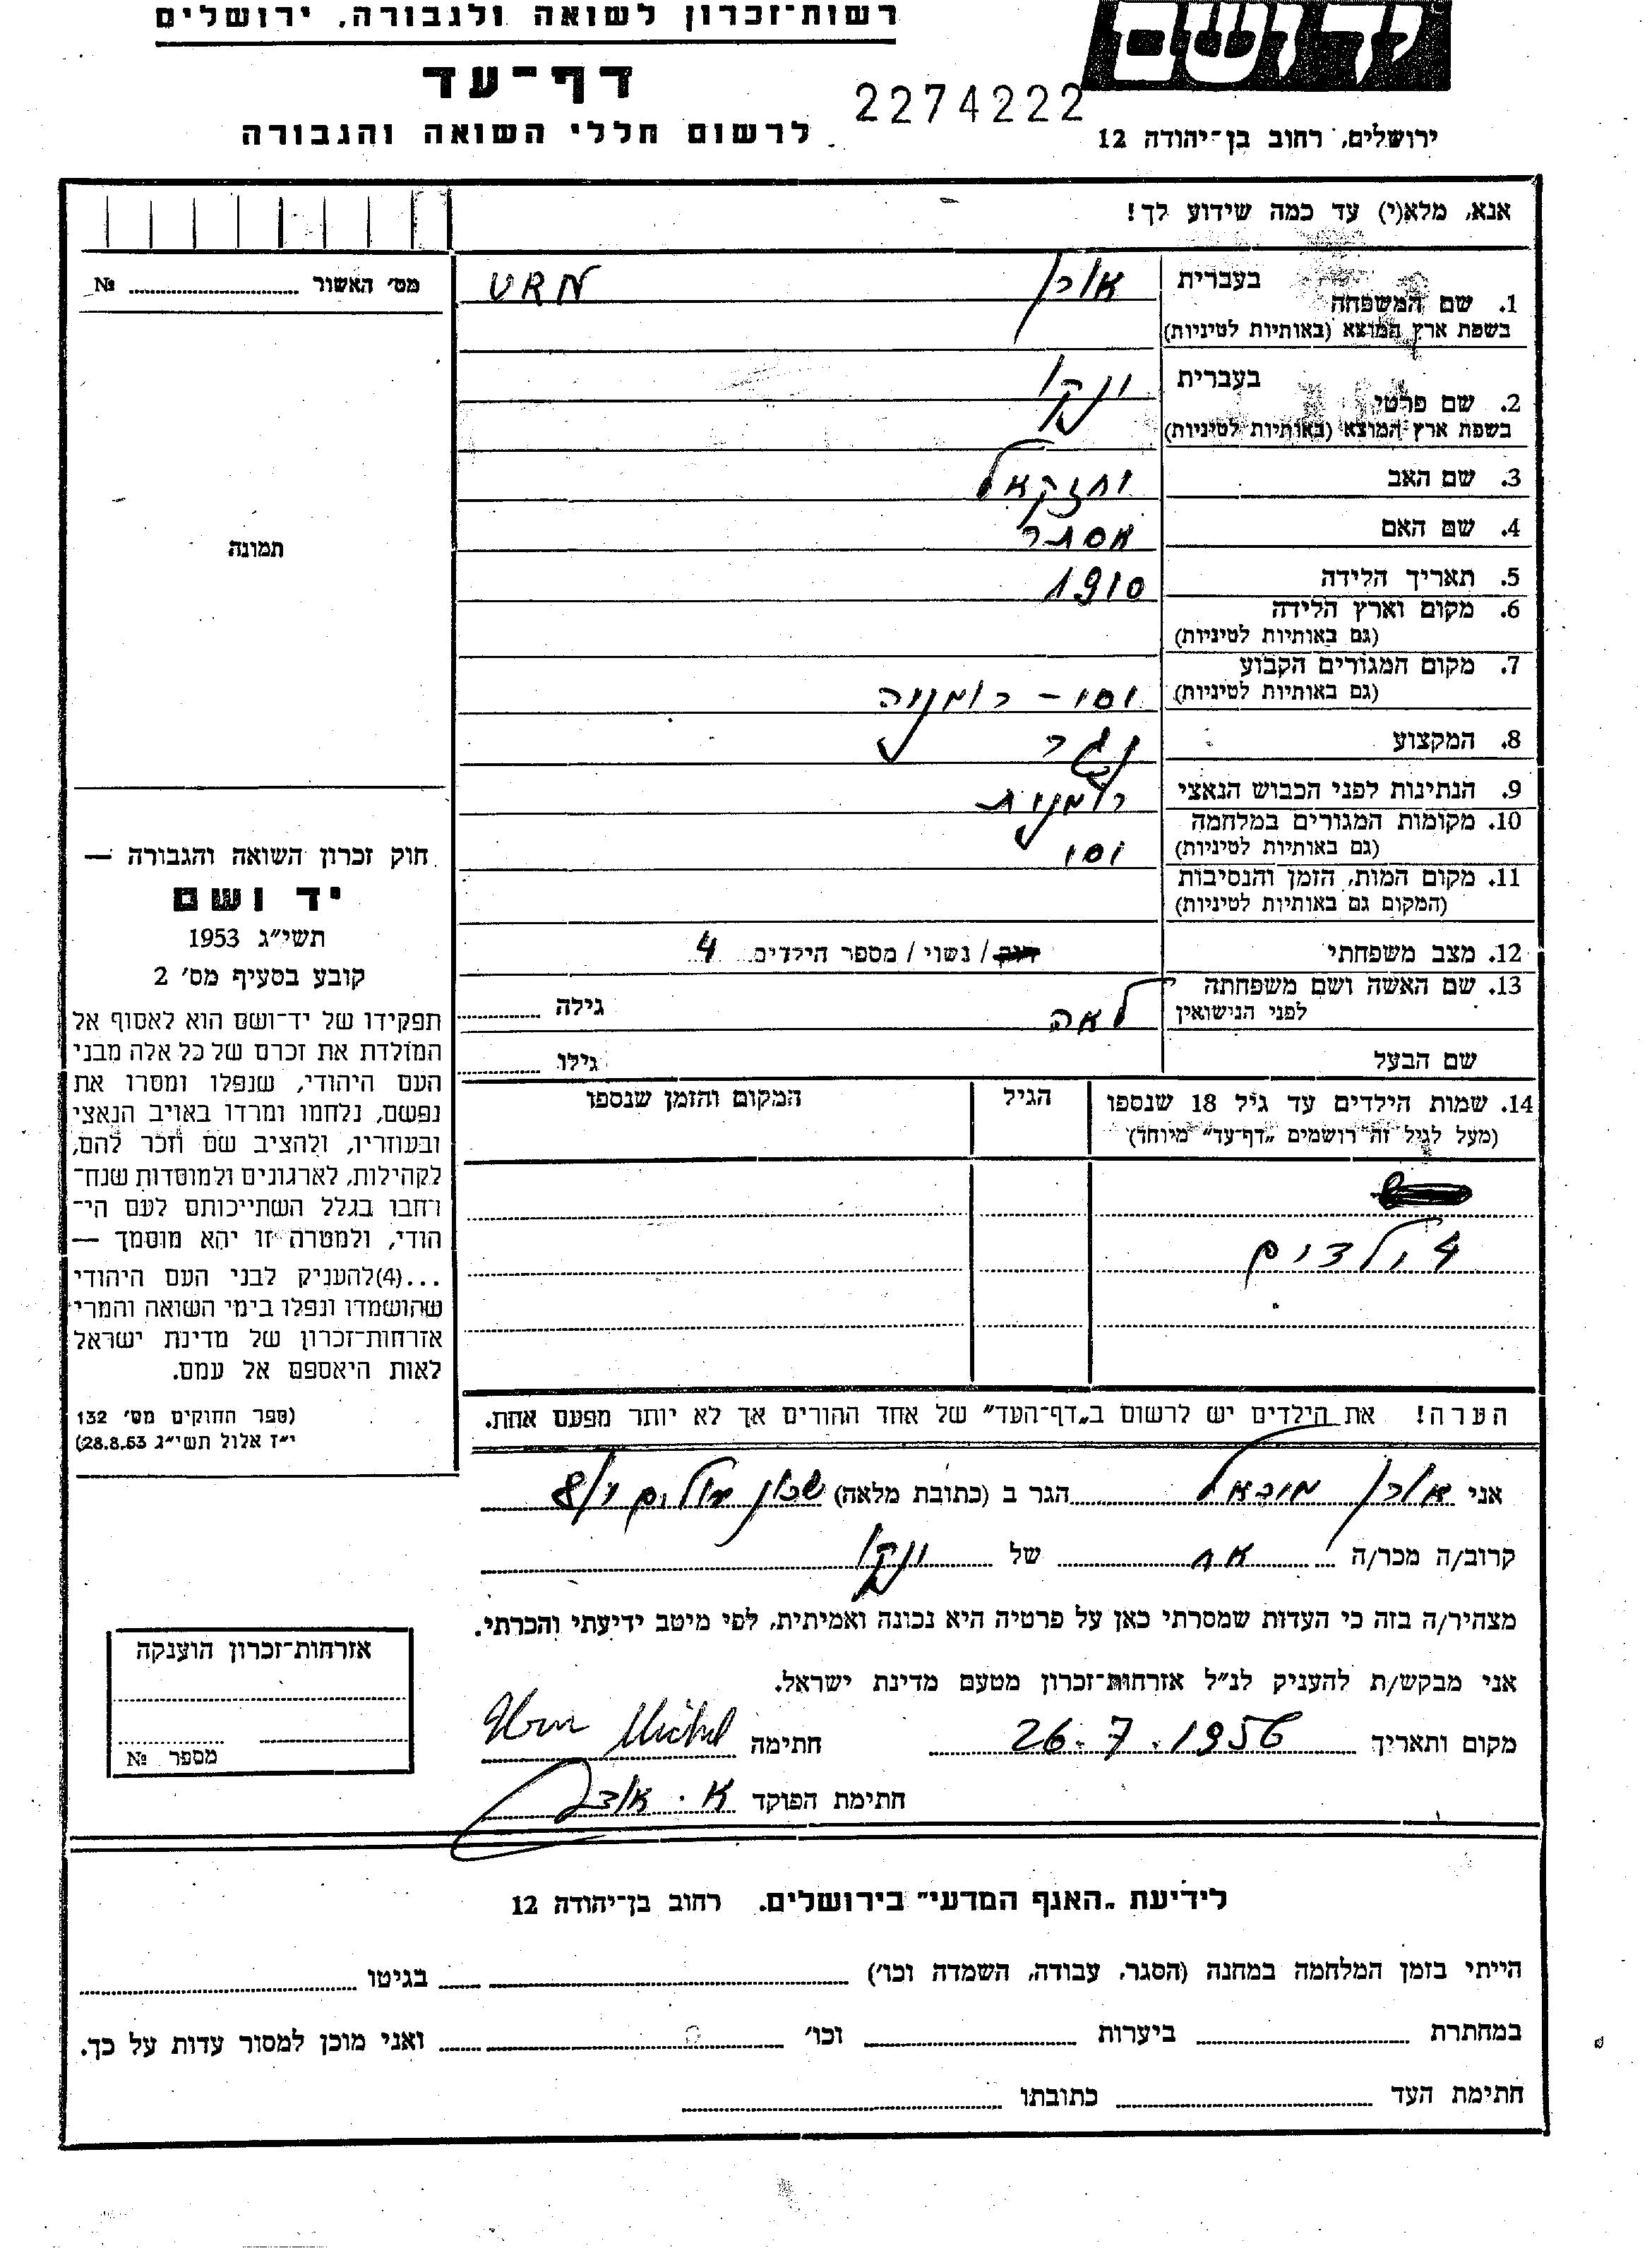 רשות־זכרון לשואה ולגבורה, ירושלים
יד ושם
דף־עד
2274222
לרשום חללי השואה והגבורה
ירושלים, רחוב בן־יהודה 12
אנא, מלא(י) עד כמה שידוע לך!
מס׳ האשור ........ №
1. שם המשפחה
בעברית אורן
בשפת ארץ המוצא (באותיות לטיניות)
URM
2. שם פרטי
בעברית ינקו
בשפת ארץ המוצא (באותיות לטיניות)
3. שם האב יחזקאל
4. שם האם אסתר
5. תאריך הלידה 1910
6. מקום וארץ הלידה
(גם באותיות לטיניות)
7. מקום המגורים הקבוע
(גם באותיות לטיניות) יסי – רומניה
8. המקצוע נגר
9. הנתינות לפני הכבוש הנאצי רומנית
10. מקומות המגורים במלחמה
(גם באותיות לטיניות) יסי
11. מקום המות, הזמן והנסיבות
(המקום גם באותיות לטיניות)
12. מצב משפחתי רווק / נשוי / מספר הילדים 4
13. שם האשה ושם משפחתה
לפני הנישואין לאה גילה
שם הבעל גילו
14. שמות הילדים עד גיל 18 שנספו הגיל המקום והזמן שנספו
(מעל לגיל זה רושמים „דף־עד” מיוחד)
4 ילדים
הערה! את הילדים יש לרשום ב„דף־העד” של אחד ההורים אך לא יותר מפעם אחת.
תמונה
חוק זכרון השואה והגבורה —
יד ושם
תשי״ג 1953
קובע בסעיף מס׳ 2
תפקידו של יד־ושם הוא לאסוף אל
המולדת את זכרם של כל אלה מבני
העם היהודי, שנפלו ומסרו את
נפשם, נלחמו ומרדו באויב הנאצי
ובעוזריו, ולהציב שם וזכר להם,
לקהילות, לארגונים ולמוסדות שנח־
רחבו בגלל השתייכותם לעם הי־
הודי, ולמטרה זו יהא מוסמך —
...(4) להעניק לבני העם היהודי
שהושמדו ונפלו בימי השואה והמרי
אזרחות־זכרון של מדינת ישראל
לאות היאספם אל עמם.
(ספר החוקים מס׳ 132
י״ז אלול תשי״ג 28.8.53)
אני אורן מיכאל הגר ב (כתובת מלאה) שכון עולים
קרוב/ה מכר/ה אח של ינקו
מצהיר/ה בזה כי העדות שמסרתי כאן על פרטיה היא נכונה ואמיתית, לפי מיטב ידיעתי והכרתי.
אני מבקש/ת להעניק לנ״ל אזרחות־זכרון מטעם מדינת ישראל.
מקום ותאריך 26.7.1956 חתימה Michel
חתימת הפוקד א.
אזרחות־זכרון הוענקה
מספר №
לידיעת „האגף המדעי” בירושלים. רחוב בן־יהודה 12
הייתי בזמן המלחמה במחנה (הסגר, עבודה, השמדה וכו׳) בגיטו
במחתרת ביערות וכו׳ ואני מוכן למסור עדות על כך.
חתימת העד כתובתו